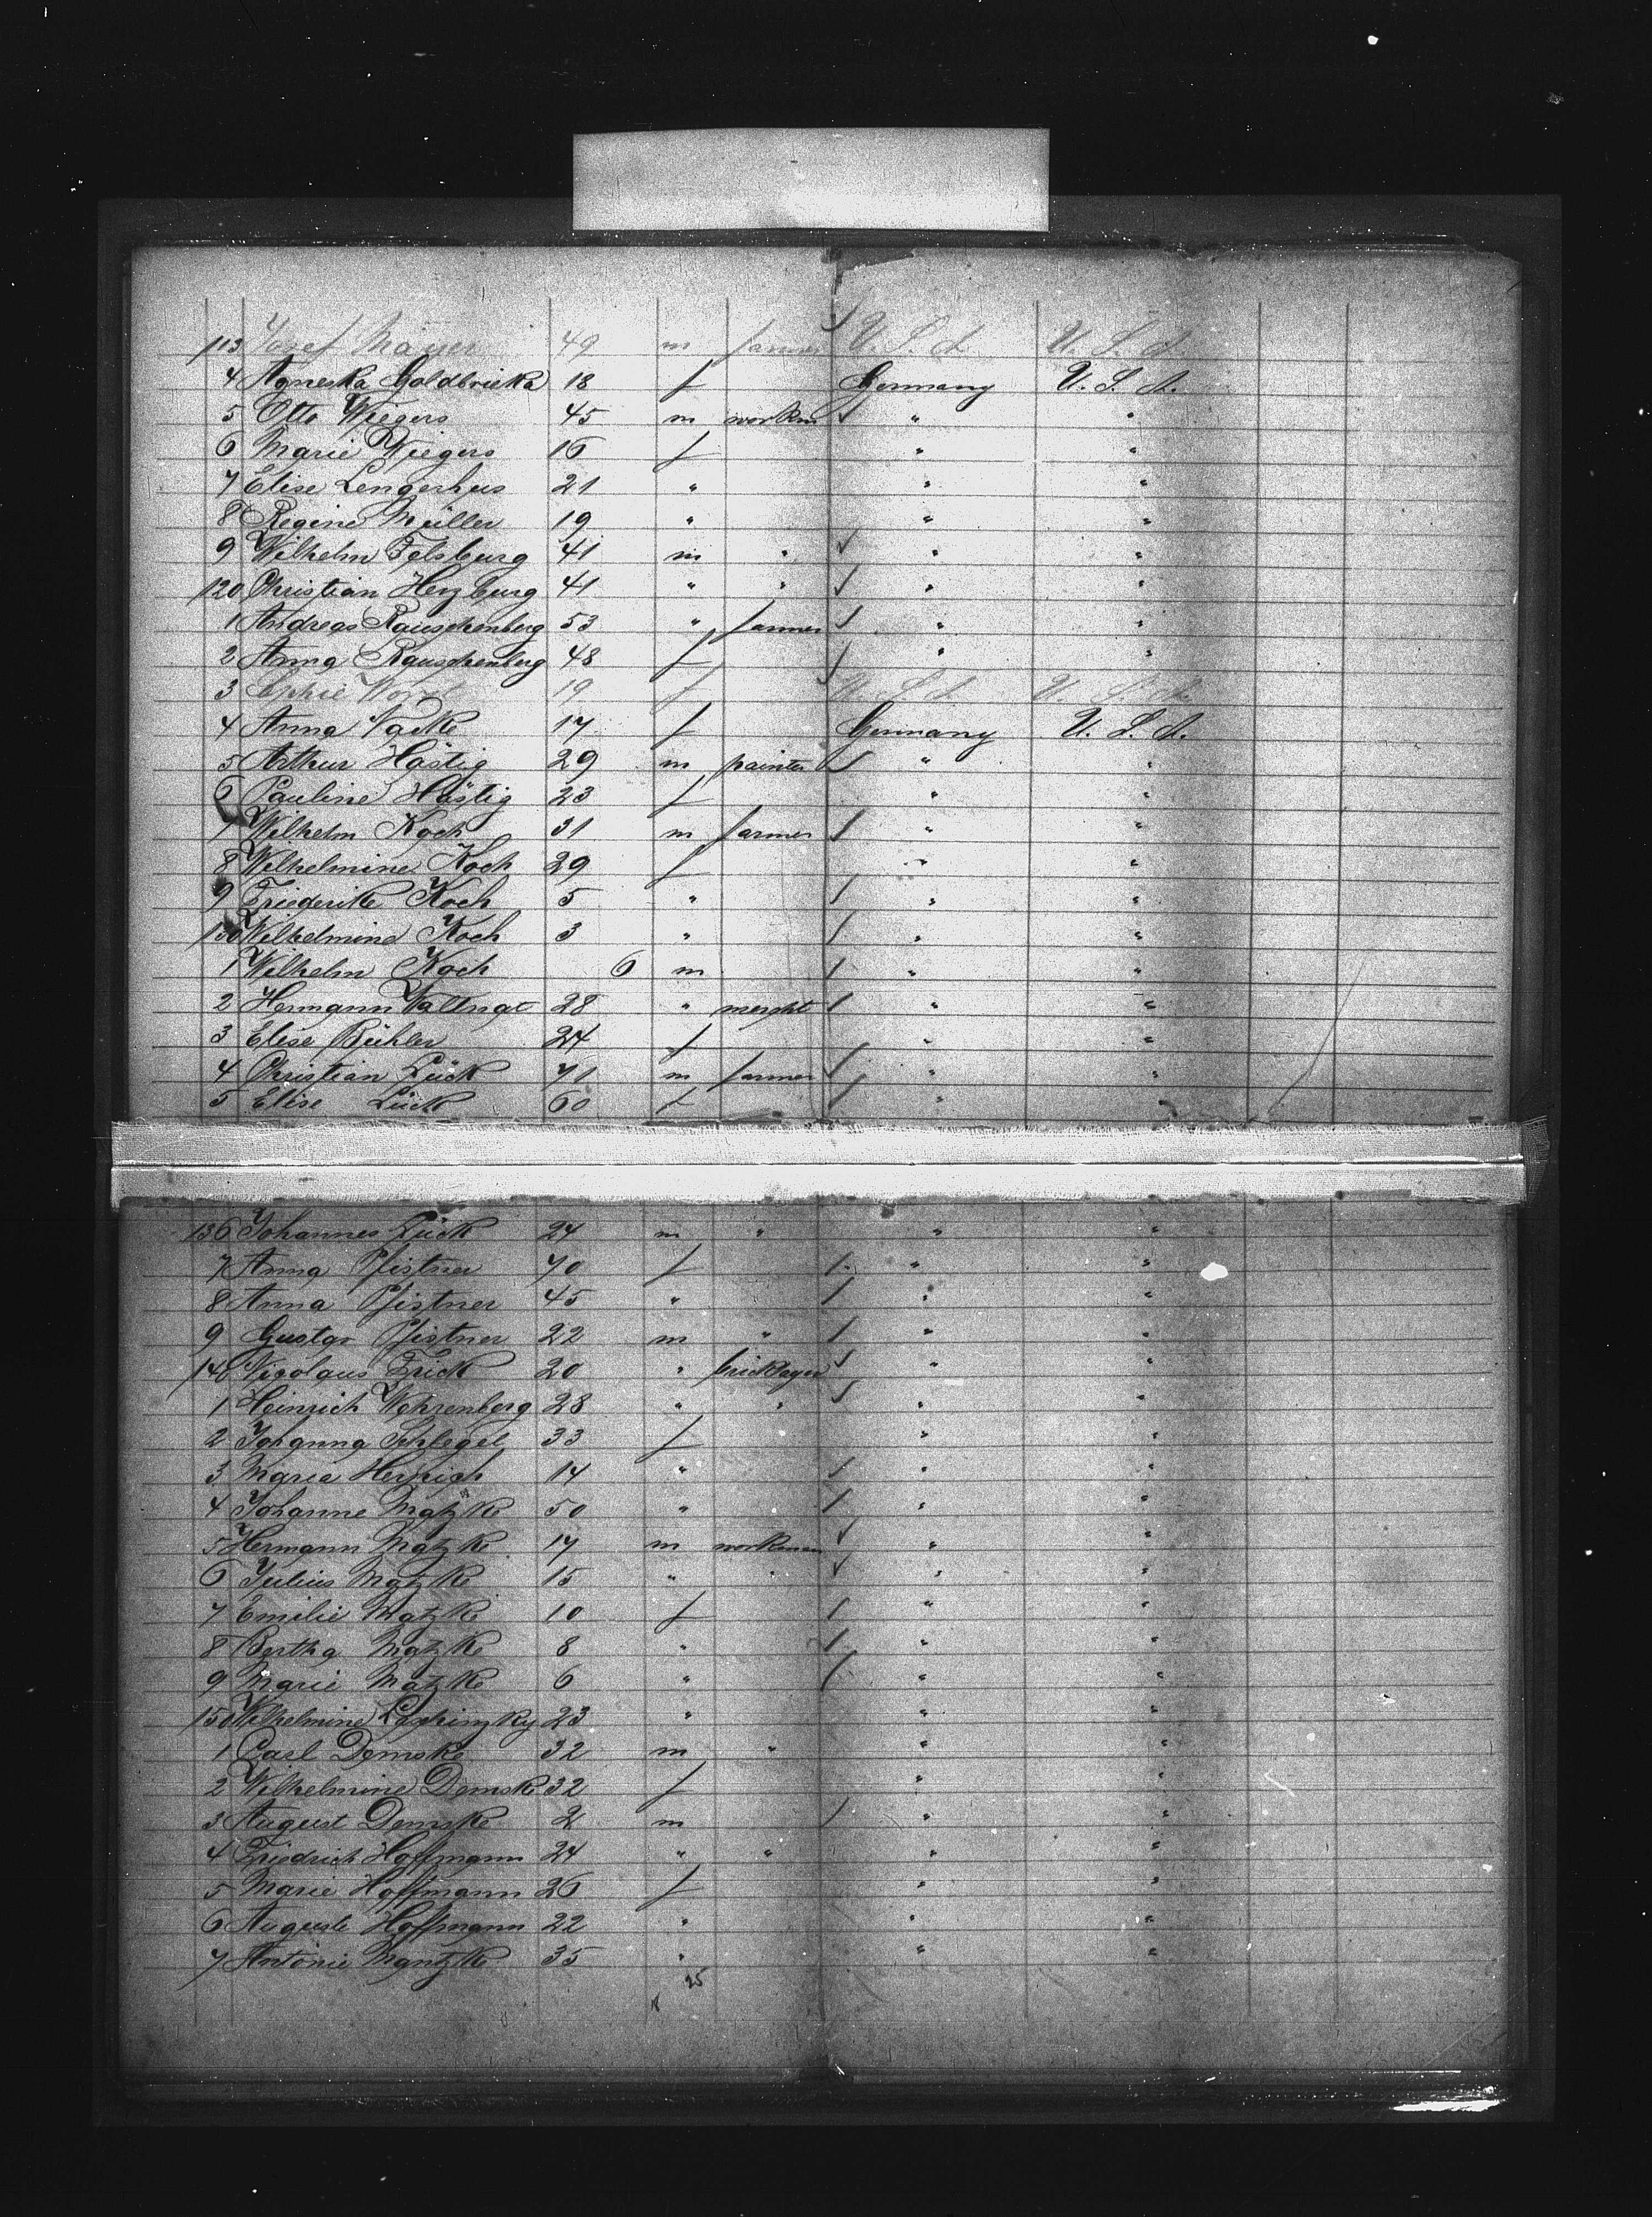 113 Josef Mayer 49 m farmer U. S. A. U. S. A.
4 Agneska Goldbricka 18 f Germany U. S. A.
5 Otto Wiegers 45 m workm " "
6 Marie Wiegers 16 f " "
7 Elise Lengerhus 21 " " "
8 Regine Müller 19 " " "
9 Wilhelm Felsburg 41 m " " "
120 Christian Herzburg 41 " " " "
1 Andreas Rauschenberg 53 " farmer " "
2 Anna Rauschenberg 48 f " "
3 19 f U. S. A. U. S. A.
4 Anna Nacke 17 f Germany U. S. A.
5 Arthur Hästig 29 m painter " "
6 Pauline Hästig 23 f " "
7 Wilhelm Koch 31 m farmer " "
8 Wilhelmine Koch 29 f " "
9 Friederike Koch 5 " " "
130 Wilhelmine Koch 3 " " "
1 Wilhelm Koch 6 m " "
2 Hermann 28 " mercht " "
3 Elise Bühler 24 f " "
4 Christian Lück 71 m farmer " "
5 Elise Lück 60 f " "
136 Johannes Lück 24 m " " "
7 Anna Pfistner 70 f " "
8 Anna Pfistner 45 " " "
9 Gustav Pfistner 22 m " " "
140 Nicolaus Frick 20 " bricklayer " "
1 Heinrich Wehrenberg 28 " " " "
2 Johanna Schlegel 33 f " "
3 Marie 14 " " "
4 Johanne Matzke 50 " " "
5 Hermann Matzke 17 m workman " "
6 Julius Matzke 15 " " " "
7 Emilie Matzke 10 f " "
8 Bertha Matzke 8 " " "
9 Marie Matzke 6 " " "
150 Wilhelmine 23 " " "
1 Carl Demske 32 m " " "
2 Wilhelmine Demske 32 f " "
3 August Demske 2 m " "
4 Friedrich Hoffmann 24 " " " "
5 Marie Hoffmann 26 f " "
6 Auguste Hoffmann 22 " " "
7 Antonie Mantzke 35 " " "
25